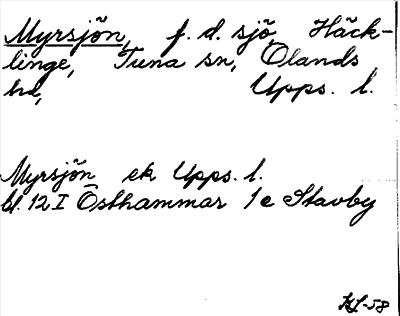 Myrsjön, f. d. sjö, Häck-
linge, Tuna sn, Ölands
hd, Upps. l.
Myrsjön ek Upps. l.
bl. 12 I Östhammar 1e Stavby
KL-58